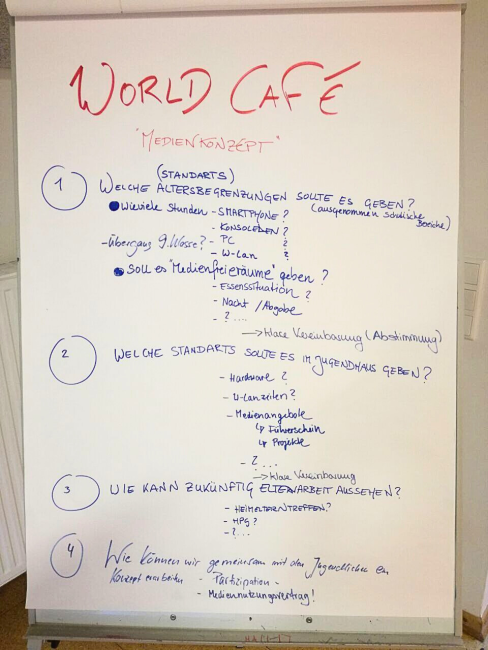 WORLD CAFÉ
"MEDIENKONZEPT"
1 (STANDARTS)
WELCHE ALTERSBEGRENZUNGEN SOLLTE ES GEBEN?
(ausgenommen schulische Bereiche)
Wieviele Stunden - SMARTPHONE?
- KONSOLEN?
- Übergang 9. Klasse? - PC ?
- W-Lan ?
Soll es "Medienfreieräume" geben?
- Essenssituation?
- Nacht / Abgabe
- ? ....
→ klare Vereinbarung (Abstimmung)
2 WELCHE STANDARTS SOLLTE ES IM JUGENDHAUS GEBEN?
- Hardware ?
- W-Lanzeiten?
- Medienangebote
↳ Führerschein
↳ Projekte
- ? ...
→ klare Vereinbarung
3 WIE KANN ZUKÜNFTIG ELTERNARBEIT AUSSEHEN?
- HEIMELTERNTREFFEN?
- HPG?
- ?...
4 Wie können wir gemeinsam mit den Jugendlichen ein
Konzept erarbeiten - Partizipation -
- Mediennutzungsvertrag!